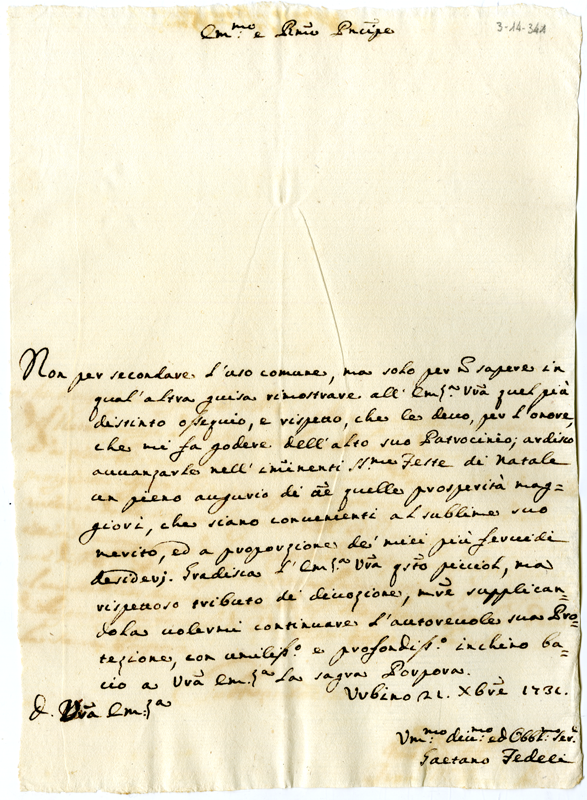 3-14-341
Em:mo e Rmo Pncipe
Non per secondare l'uso comune, ma solo per nõ sapere in
qual'altra guisa rimostrare all'Em:za Vra quel più
distinto ossequio, e rispetto, che le devo, per l'onore,
che mi fa godere dell'alto suo Patrocinio; ardisco
avvanzarle nell'imñinenti SS.me Feste di Natale
un pieno augurio di tte quelle prosperità mag=
giori, che siano convenienti al sublime suo
merito, ed a proporzione de' miei più fervidi
desiderj. Gradisca l'Em:za Vra qsto picciol, ma
rispettoso tributo di divozione, mtre supplican=
dola volermi continuare l'autorevole sua Pro=
tezione, con umiliss:o e profondiss:o inchino ba=
cio a Vra Em:za la sagra Porpora.
Urbino 21. Xbre 1731.
D. Vra Em:za
Um:mo dev:mo ed Obbl: Ser:
Gaetano Fedeli